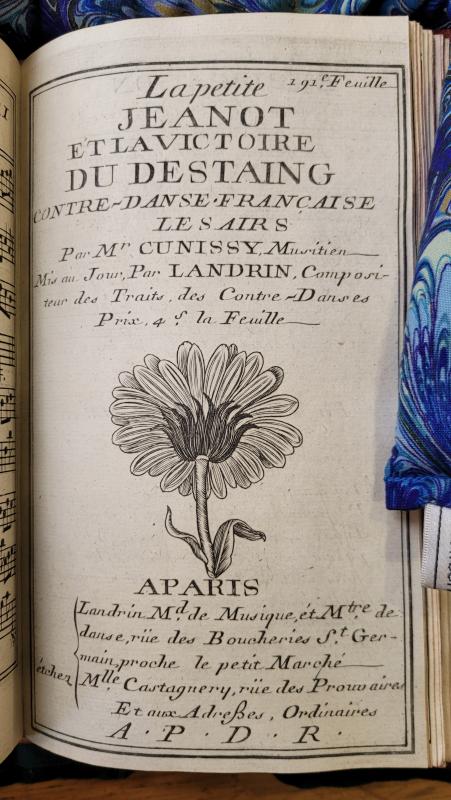 La petite 191.e Feuille
JEANOT
ET LA VICTOIRE
DU DESTAING
CONTRE-DANSE·FRANÇAISE
LES AIRS
Par Mr CUNISSY, Musitien
Mis au Jour, Par LANDRIN, Composi-
teur des Traits, des Contre-Danses
Prix, 4 s. la Feuille
A PARIS
Landrin M.d de Musique, ét M.tre de
danse, rüe des Boucheries S.t Ger-
main, proche le petit Marché
étchez M.lle Castagnery, rüe des Prouvaires
Et aux Adreßes, Ordinaires
A · P · D · R ·